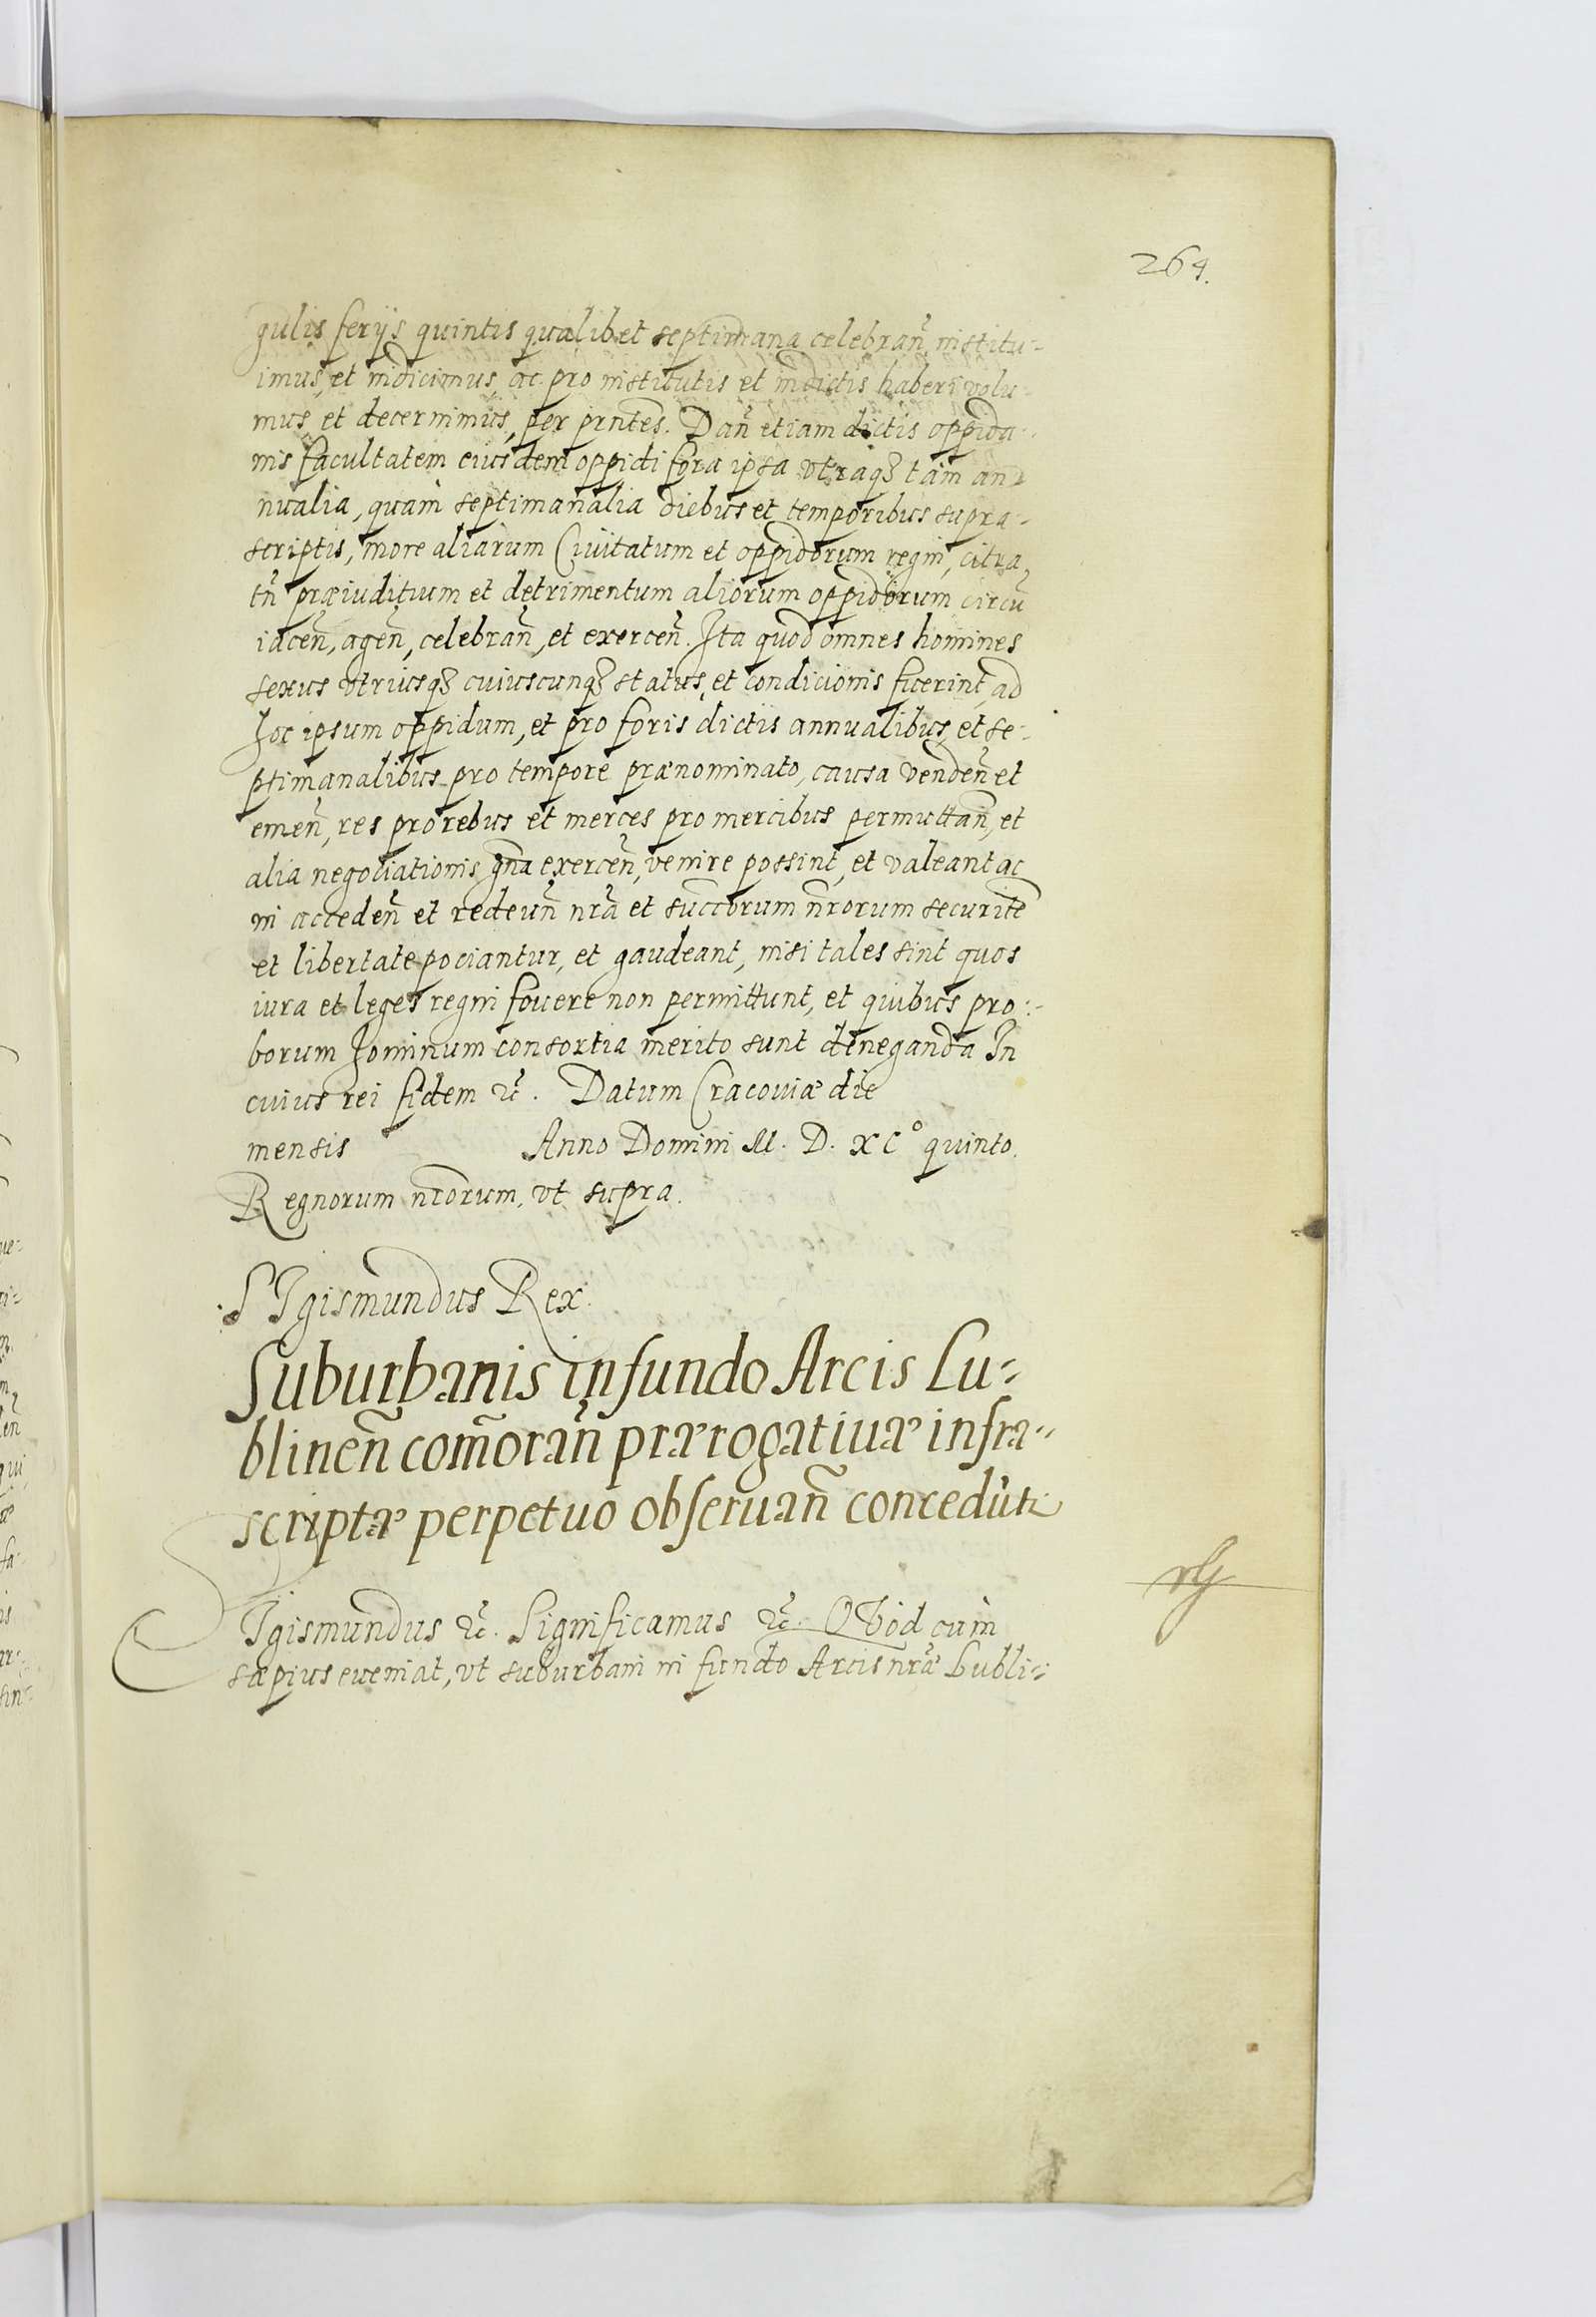 264.
gulis ferijs quintis qualibet septimana celebrañ institu-
imus, et indicimus, ac pro institutis et indictis haberi volu-
mus, et decernimus, per prñtes. Dañ etiam dictis oppida-
nis facultatem eiusdem oppidi fora ipsa vtraqꝫ tam an-
nualia, quàm septimanalia diebus et temporibus supra-
scriptis, more aliarum Ciuitatum et oppidorum regni, citra
tñ præiuditium et detrimentum aliorum oppidorum circũ
iaceñ, ageñ, celebrañ, et exerceñ. Ita quod omnes homines
sexus vtriusqꝫ cuiuscunqꝫ status, et condicionis fuerint, ad
hoc ipsum oppidum, et pro foris dictis annualibus, et se-
ptimanalibus pro tempore prænominato, causa vendeñ et
emeñ, res pro rebus et merces pro mercibus permuttañ, et
alia negociationis gña exerceñ, venire possint, et valeant ac
in accedeñ et redeuñ nrã et succorum ñrorum securite
et libertate pociantur, et gaudeant, nisi tales sint quos
iura et leges regni fouere non permittunt, et quibus pro-
borum hominum consortia merito sunt deneganda In
cuius rei fidem ꝛc̃. Datum Cracouiæ die
mensis Anno Domini M. D. XC° quinto.
Regnorum nrorum, vt supra.
SIgismundus Rex.
Suburbanis in fundo Arcis Lu-
blineñ com̃orañ prærogatiuæ infra-
scriptæ perpetuo obseruañ concedũtr
SIgismundus ꝛc̃. Significamus ꝛc̃. QVod cùm
sæpius eueniat, vt suburbani in fundo Arcis nrã Lubli-